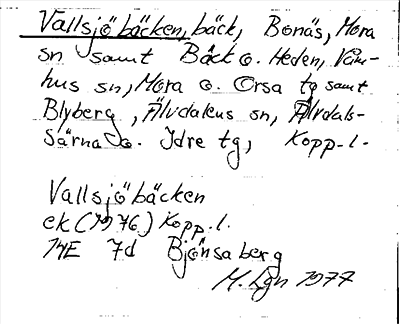 Vallsjöbäcken, bäck, Bonäs, Mora
sn samt Bäck o. Heden, Våm-
hus sn, Mora o. Orsa tg samt
Blyberg, Älvdalens sn, Älvdals-
Särna o. Idre tg, Kopp. l.
Vallsjöbäcken
ek (1976) Kopp. l.
14E 7d Bjönsaberg
M. Lgn 1977